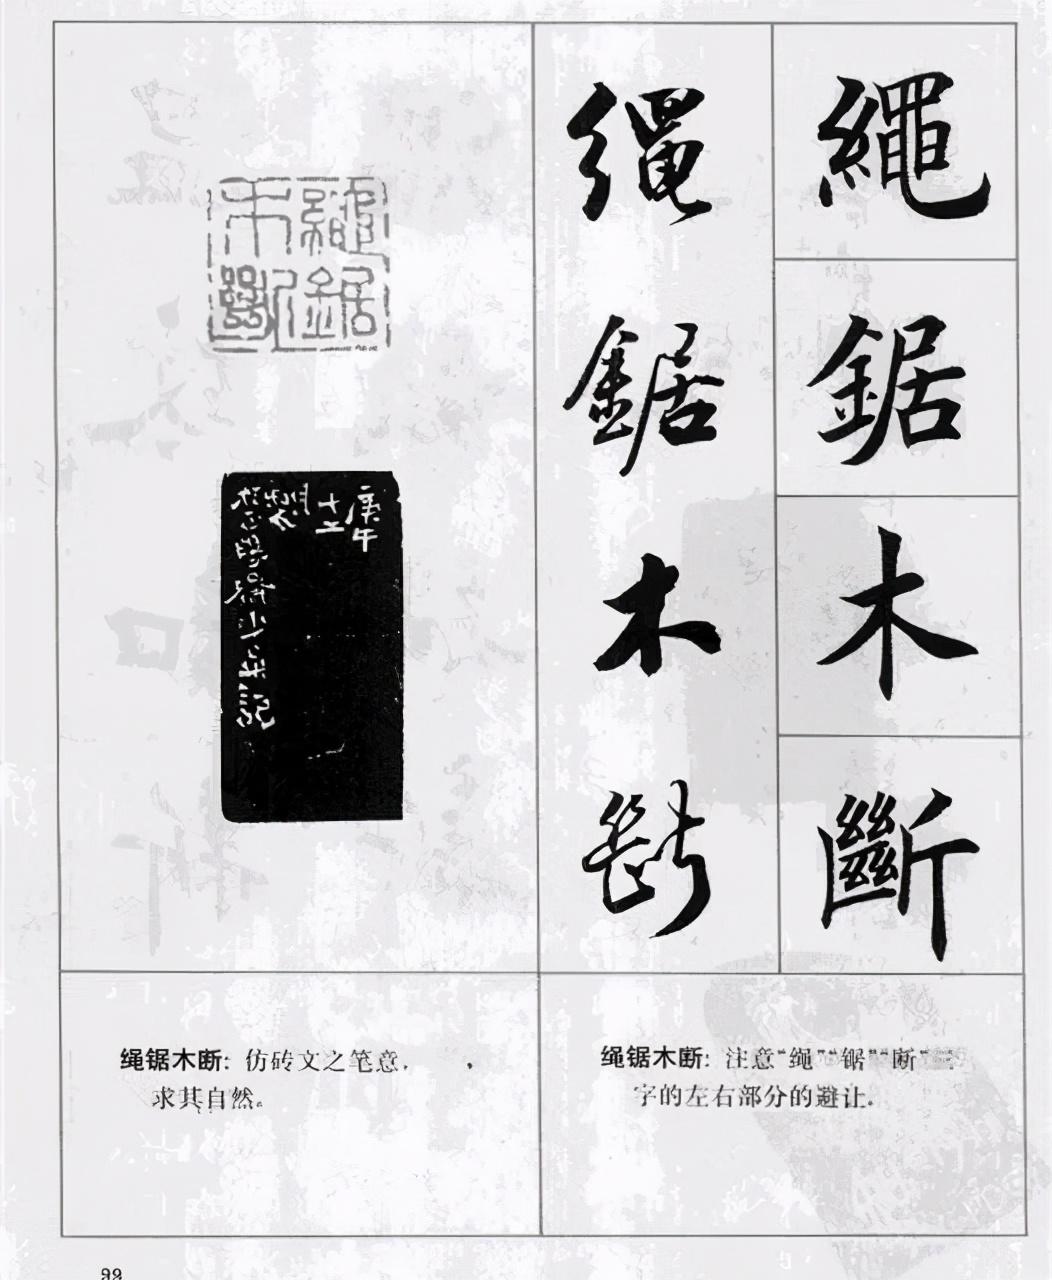 繩
鋸
木
斷
繩
鋸
木
斷
繩鋸
木斷
庚午
十二
绳锯木断：注意“绳”“锯”“断”三
字的左右部分的避让。
绳锯木断：仿砖文之笔意，
求其自然。
99